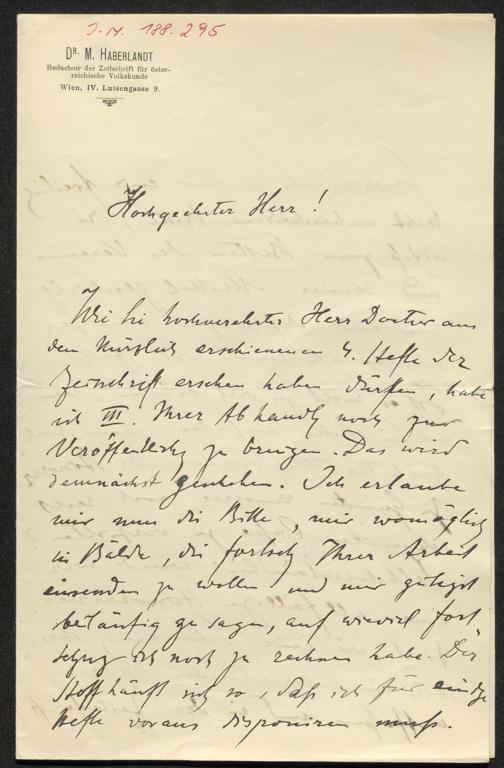 J. N. 188.295
Dr. M. Haberlandt
Redacteur der Zeitschrift für öster-
reichische Volkskunde
Wien, IV. Luisengasse 9.
Hochgeehrter Herr!
Wie Sie hochverehrter Herr Doctor aus
dem kürzlich erschienenen 4. Hefte der
Zeitschrift ersehen haben dürften, habe
ich III. Ihrer Abhandlg noch zur
Veröffentlichg zu bringen. Das wird
demnächst geschehen. Ich erlaube
mir nun die Bitte, mir womöglich
in Bälde, die Fortsetzg Ihrer Arbeit
einsenden zu wollen und mir gütigst
beiläufig zu sagen, auf wieviel Fort
setzg ich noch zu rechnen habe. Der
Stoff häuft sich so, daß ich für einige
Hefte voraus disponiren muß.